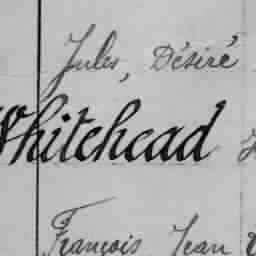 Jules, Désiré
Whitehead
François Jean